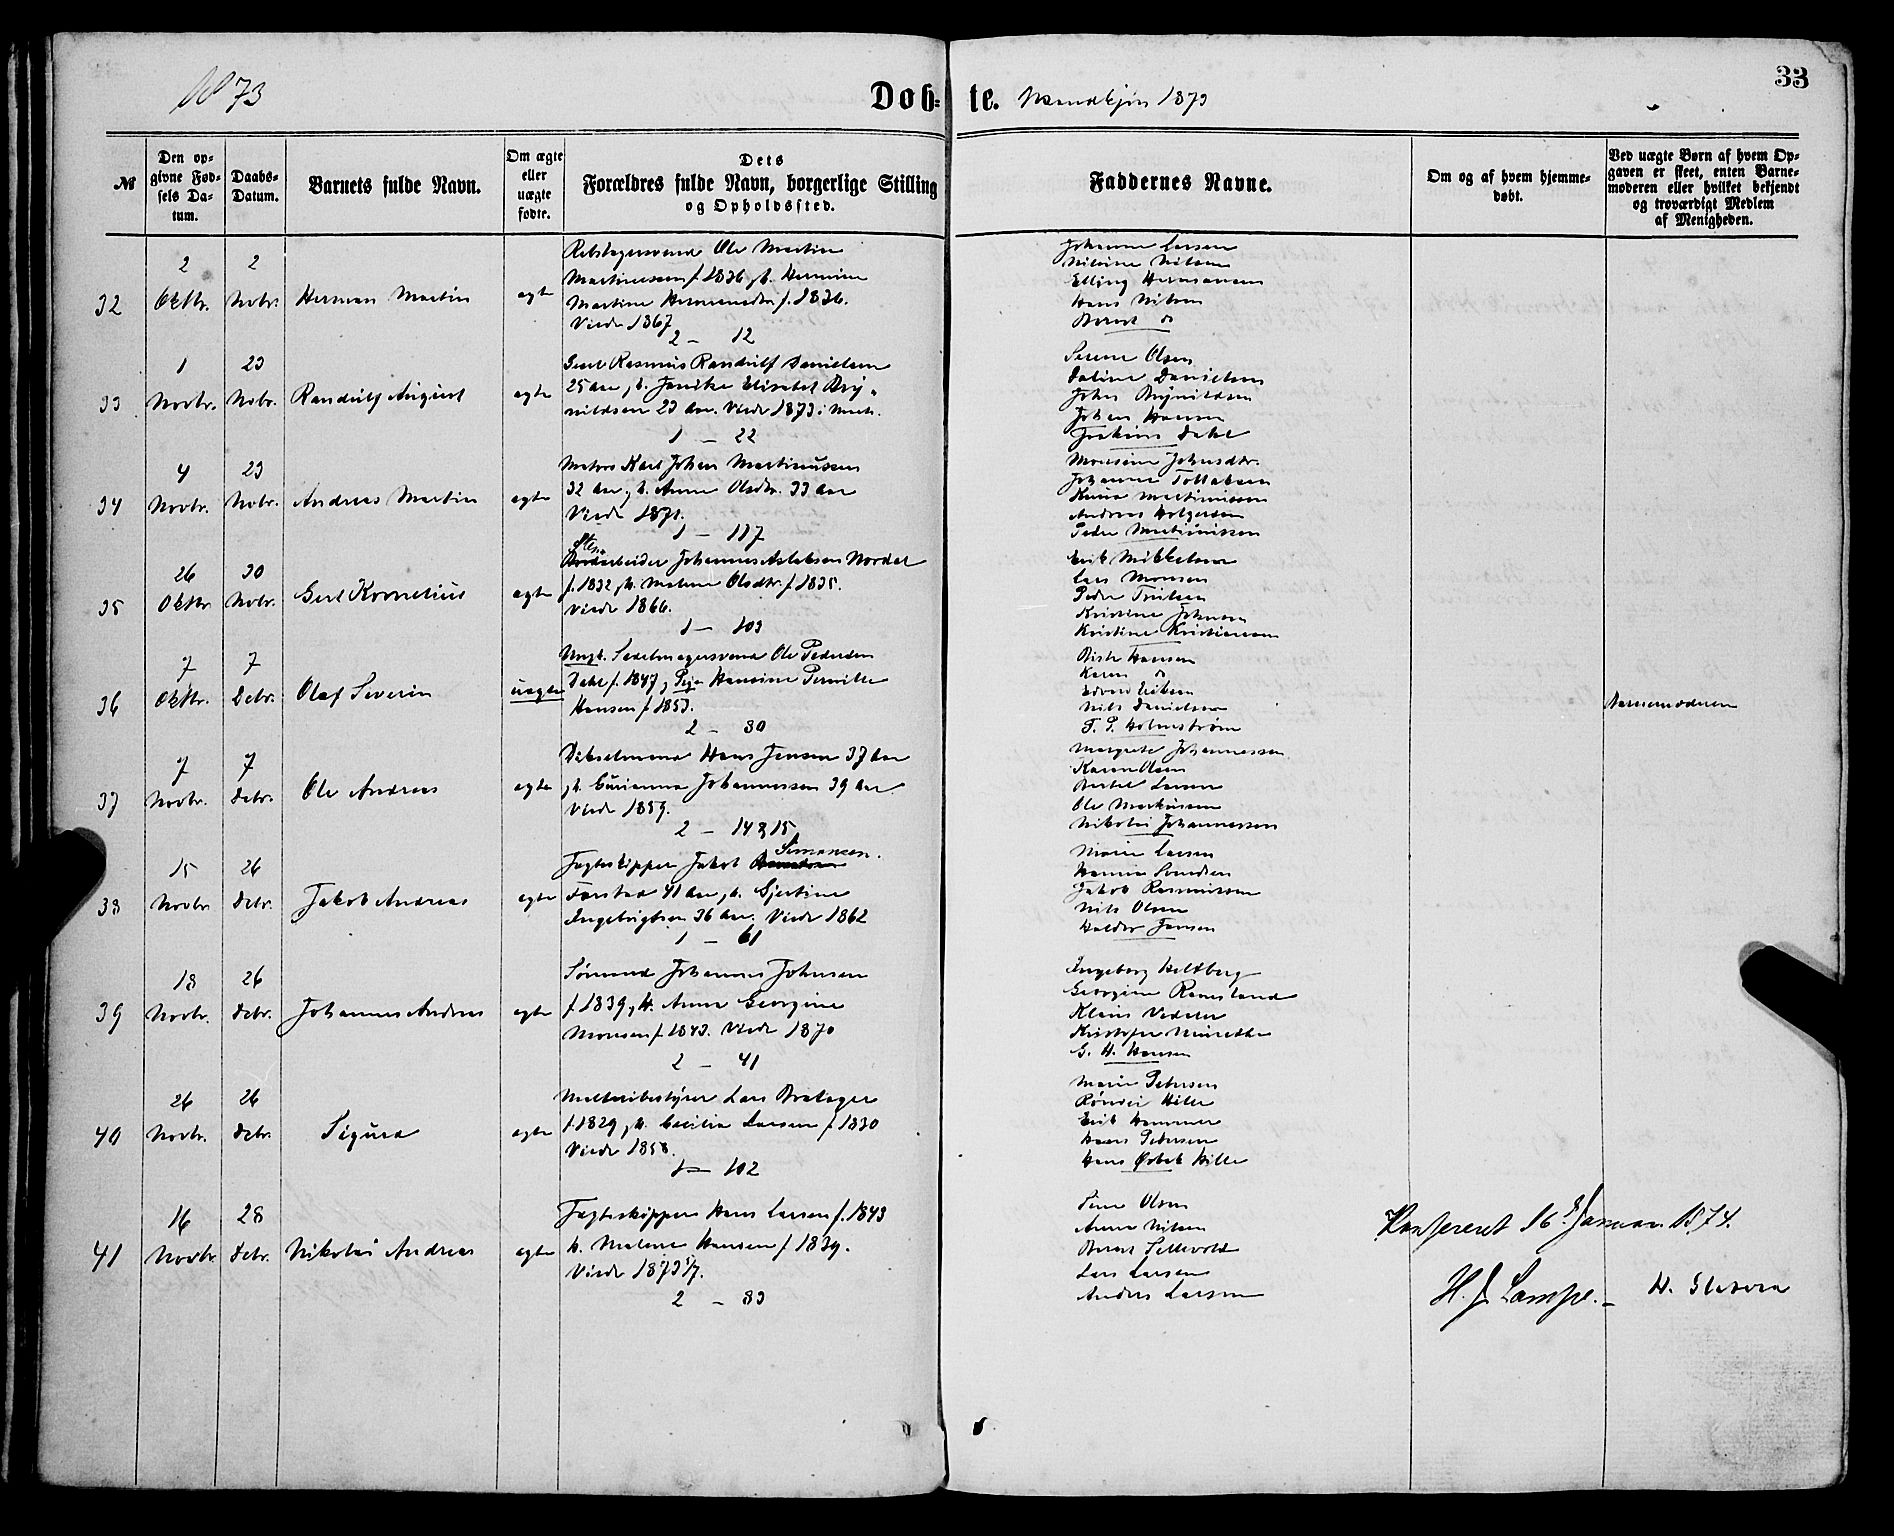 1873
Døb- te. Mandkjøn 1873
33
№
Den opgivne Fødsels Datum.
Daabs-Datum.
Barnets fulde Navn.
Om ægte eller uægte fødte.
Dets Forældres fulde Navn, borgerlige Stilling og Opholdssted.
Faddernes Navne.
Om og af hvem hjemmedøbt.
Ved uægte Børn af hvem Opgaven er skeet, enten Barnemoderen eller hvilket bekjendt og troværdigt Medlem af Menigheden.
32
2 Oktbr.
2 Novbr.
Herman Martin
ægte
Rebslagersvend Ole Martin
Martinussen f. 1836, h. Hermine
Martine Hermansdtr f. 1836.
Viede 1867
2 — 12
Johanne Larsen
Nilsine Nilsen
Elling Hermansen
Hans Nilsen
Berent do
33
1 Novbr.
23 Novbr.
Randulf August
ægte
Rasmus Randulf Danielsen
25 Aar, h. Janike Elisabet Bry-
nildsen 23 Aar. Viede 1873
1 — 22
Serene Olsen
Daline Danielsen
Johan Brynildsen
Johan Hansen
Joakim Dahl
34
4 Novbr.
23 Novbr.
Andreas Martin
ægte
Matros Karl Johan Martinussen
32 Aar, h. Anne Olsdtr. 33 Aar
Viede 1871.
1 — 117
Monsine Johnsdtr.
Johanne Tollaksen
Martinussen
Andreas Holgersen
Peder Martinussen
35
26 Oktbr
30 Novbr.
Gert Kornelius
ægte
Sten
arbeider Johannes Aslaksen Nordal
f. 1832, h. Malene Olsdtr. f. 1835.
Viede 1866.
1 — 103
Erik Mikkelsen
Lars Monsen
Peder Troelsen
Kristine Johnsen
Kristine Kristiansen
36
7 Oktbr.
7 Debr.
Olaf Severin
uægte
Ungk. Sadelmagersvend Ole Pedersen
Dahl f. 1847, Pige Hansine Pernille
Hansen f. 1853.
2 — 30
Berte Hansen
Karen do
Edvard Eriksen
Nils Danielsen
T. P. Holmstrøm
Barnemoderen
37
7 Novbr.
7 Debr.
Ole Andreas
ægte
Hans Jensen 37 Aar
h. Johannessen 39 Aar
Viede 1859.
2 — 14 & 15
Margrete Johannessen
Karen Olsen
Bertel Larsen
Ole Markussen
Nikolai Johannessen
38
15 Novbr
26 Debr.
Jakob Andreas
ægte
Jagteskipper Jakob Simonsen.
Farstad 41 Aar, h. Gjertine
Ingebrigtsen 36 Aar. Viede 1862
1 — 61
Marie Larsen
Hanna Svendsen
Jakob Rasmussen
Nils Olsen
Haldor Jansen
39
18 Novbr.
26 Debr.
Johannes Andreas
ægte
Sømand Johannes Johnsen
f. 1839, h. Anna Georgine
Monsen f. 1843. Viede 1870
2 — 41
Ingeborg Heltberg
Georgine Ramsland
Klaus Vedeler
Kristofer
G. H. Hansen
40
26 Novbr.
26 Debr.
Sigurd
ægte
Lars Bratager
f. 1829, h. Cecilia Larsen f. 1830
Viede 1858.
1 — 102
Marie Petersen
Hille
Erik Hammer
Hans Petersen
Hans Hille
41
16 Novbr
28 Debr.
Nikolai Andreas
ægte
Jagteskipper Hans Larsen f. 1843
h. Malene Hansen f. 1839.
Viede 1873 /7.
2 — 83
Sina Olsen
Anna Nilsen
Berent Sellevold
Lars Larsen
Anders Larsen
Konfereret 16 Januar 1874.
H. J. Lampe.